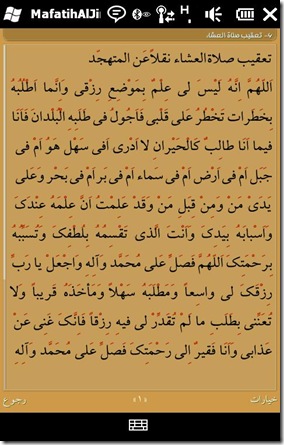 MafatihAlJi
٦- تعقيب صلاة العشاء
تعقيب صلاة العشاء نقلاً عَن المتهجّد
اَللّهُمَّ اِنَّهُ لَيْسَ لى عِلْمٌ بِمَوْضِعِ رِزْقى وَاِنَّما اَطْلُبُهُ
بِخَطَرات تَخْطُرُ عَلى قَلْبى فَاَجُولُ فى طَلَبِهِ الْبُلْدانَ فَاَنَا
فيما اَنَا طالِبٌ كَالْحَيْرانِ لا اَدْرى اَفى سَهْل هَوُ اَمْ فى
جَبَل اَمْ فى اَرْض اَمْ فى سَماء اَمْ فى بَر اَمْ فى بَحْر وَعَلى
يَدَىْ مَنْ وَمِنْ قِبَلِ مَنْ وَقَدْ عَلِمْتُ اَنَّ عِلْمَهُ عِنْدَكَ
وَاَسْبابَهُ بِيَدِكَ وَاَنْتَ الَّذى تَقْسِمُهُ بِلُطْفِكَ وَتُسَبِّبُهُ
بِرَحْمَتِكَ اَللّهُمَّ فَصَلِّ عَلى مُحَمَّد وَآلِهِ وَاجْعَلْ يا رَبِّ
رِزْقَكَ لى واسِعاً وَمَطْلَبَهُ سَهْلاً وَمَأخَذَهُ قَريباً وَلا
تُعَنِّنى بِطَلَبِ ما لَمْ تُقَدِّرْ لى فيهِ رِزْقاً فَاِنَّكَ غَنِىٌّ عَنْ
عَذابى وَاَنَا فَقيرٌ اِلى رَحْمَتِكَ فَصَلِّ عَلى مُحَمَّد وَآلِهِ
خيارات
«١»
رجوع